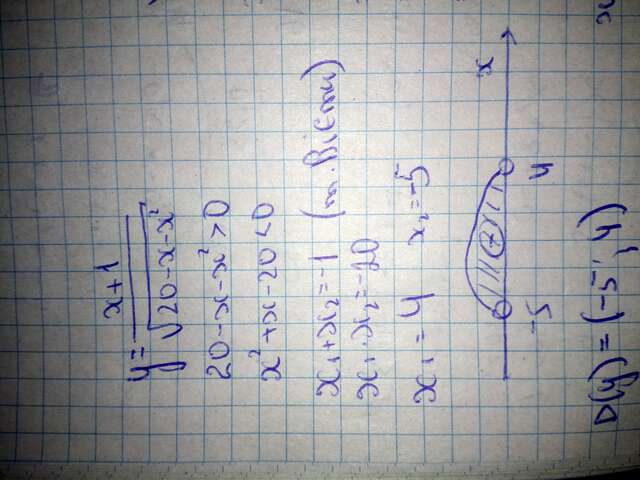 y = x+1 / √20-x-x²
20-x-x² > 0
x²+x-20 < 0
x₁+x₂=-1 (т. Вієта)
x₁·x₂=-20
x₁=4 x₂=-5
-5 + 4 x
D(y) = (-5; 4)